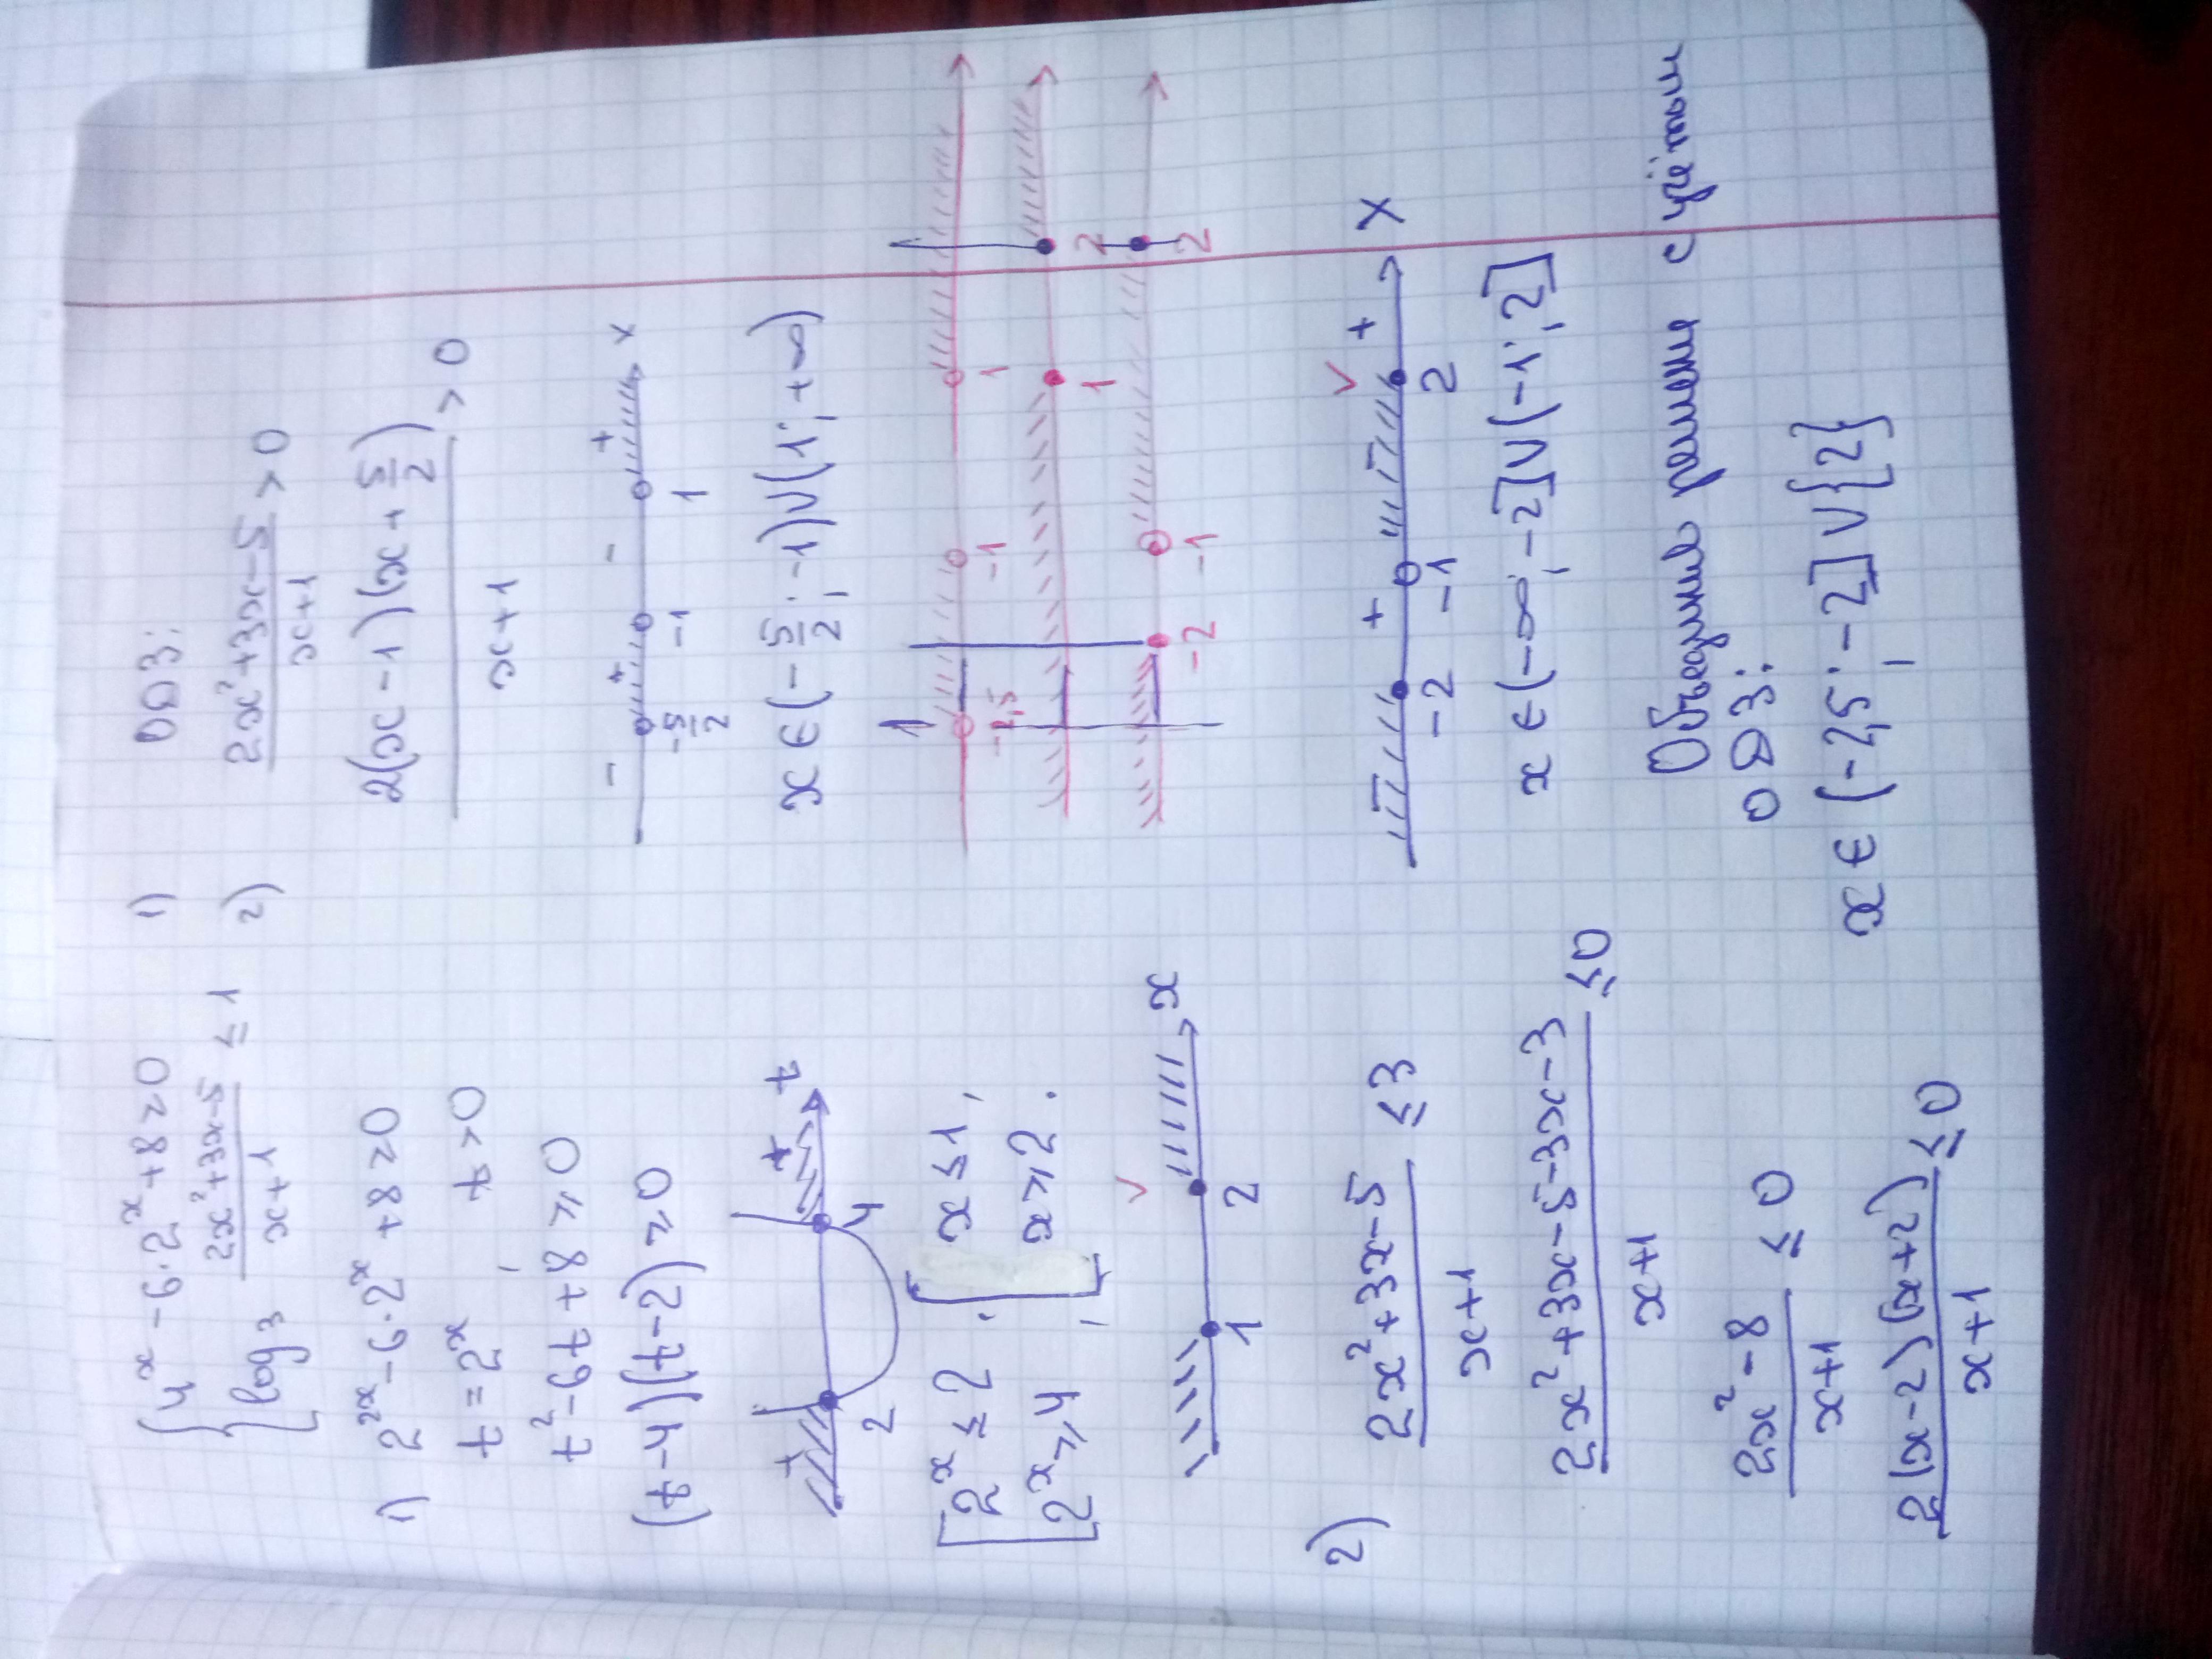 {4^x - 6·2^x + 8 ≥ 0 1)
{log₃ (2x²+3x-5)/(x+1) ≤ 1 2)
1) 2^(2x) - 6·2^x + 8 ≥ 0
t = 2^x, t > 0
t² - 6t + 8 ≥ 0
(t-4)(t-2) ≥ 0
+ + t
2 4
[2^x ≤ 2, [x ≤ 1,
[2^x ≥ 4, [x ≥ 2.
V x
1 2
2) (2x²+3x-5)/(x+1) ≤ 3
(2x²+3x-5-3x-3)/(x+1) ≤ 0
(2x²-8)/(x+1) ≤ 0
2(x-2)(x+2)/(x+1) ≤ 0
ОДЗ:
(2x²+3x-5)/(x+1) > 0
2(x-1)(x+5/2)/(x+1) > 0
- + - + x
-5/2 -1 1
x ∈ (-5/2; -1) ∪ (1; +∞)
-2,5 -1 1
1 2
-2 -1 2
+ V + x
-2 -1 2
x ∈ (-∞; -2] ∪ (-1; 2]
Объединив решение с учётом
ОДЗ:
x ∈ (-2,5; -2] ∪ {2}